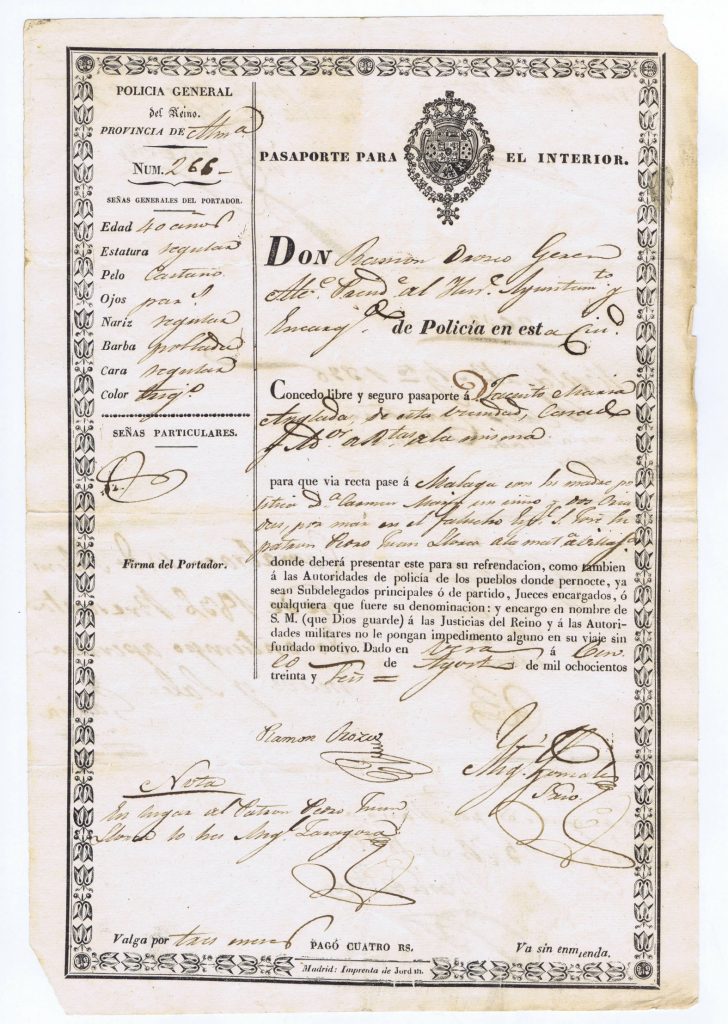 POLICIA GENERAL
del Reino.
PROVINCIA DE Alm.a
NUM. 266
SEÑAS GENERALES DEL PORTADOR.
Edad 40 años
Estatura regular
Pelo Castaño
Ojos par.s
Nariz regular
Barba poblada
Cara regular
Color trig.o
SEÑAS PARTICULARES.
Firma del Portador.
PASAPORTE PARA EL INTERIOR.
DON Ramon Orozco Geren
Alc.e Presid.e al Ylus.e Ayuntam.to y
Encarg.o de Policía en esta Ciu.d
Concedo libre y seguro pasaporte á Jacinto Maria
Anglada, de esta vecindad,
a la misma
para que via recta pase á Malaga con su madre po
litica D.a Carmen un niño y dos Cria
das, por mar en el falucho S. José su
patron Pedro Juan Llorca a la mat.a
donde deberá presentar este para su refrendacion, como tambien
á las Autoridades de policía de los pueblos donde pernocte, ya
sean Subdelegados principales ó de partido, Jueces encargados, ó
cualquiera que fuere su denominacion: y encargo en nombre de
S. M. (que Dios guarde) á las Justicias del Reino y á las Autori-
dades militares no le pongan impedimento alguno en su viaje sin
fundado motivo. Dado en Vera á
de Agosto de mil ochocientos
treinta y seis
Ramon Orozco
Srio.
Nota
En lugar al Patron Pedro Juan
Llorca lo hes Ang.l Zaragoza
Valga por tres meses
PAGÓ CUATRO RS.
Va sin enmienda.
Madrid: Imprenta de Jordan.